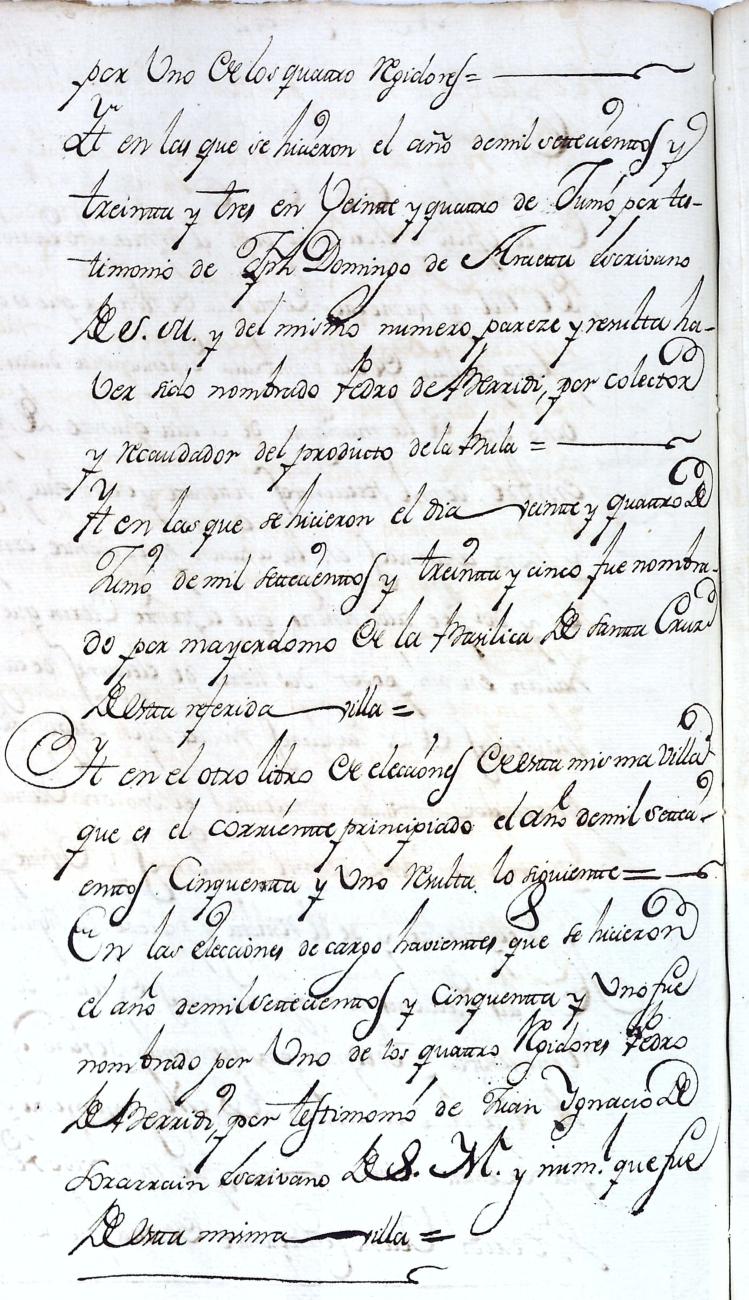 por Uno de los quattro Rejidores =
Yt en las que se hicieron el año de mil settecienttos y
treintta y tres en Veintte y quattro de Junio por tes-
timonio de Jph Domingo de Araetta escrivano
de S. M. y del mismo numero pareze y resulta ha-
ver sido nombrado Pedro de Berridi, por colector
y recaudador del producto de la Bula =
Yt en las que se hicieron el dia veintte y quattro de
Junio de mil settecienttos y treintta y cinco fue nombra-
do por mayordomo de la Basilica de Santta Cruz
de estta referida villa =
Yt en el otro libro de elecciones de estta misma Villa
que es el corrientte principiado el año de mil setteci-
enttos Cinquentta y Uno resulta lo siguientte =
En las elecciones de cargo havienttes que se hicieron
el año de mil settecienttos y Cinquentta y Uno fue
nombrado por Uno de los quattro Rejidores Pedro
de Berridi, por testimonio de Juan Ygnacio de
escrivano de S. M. y num.l que fue
de estta misma villa =